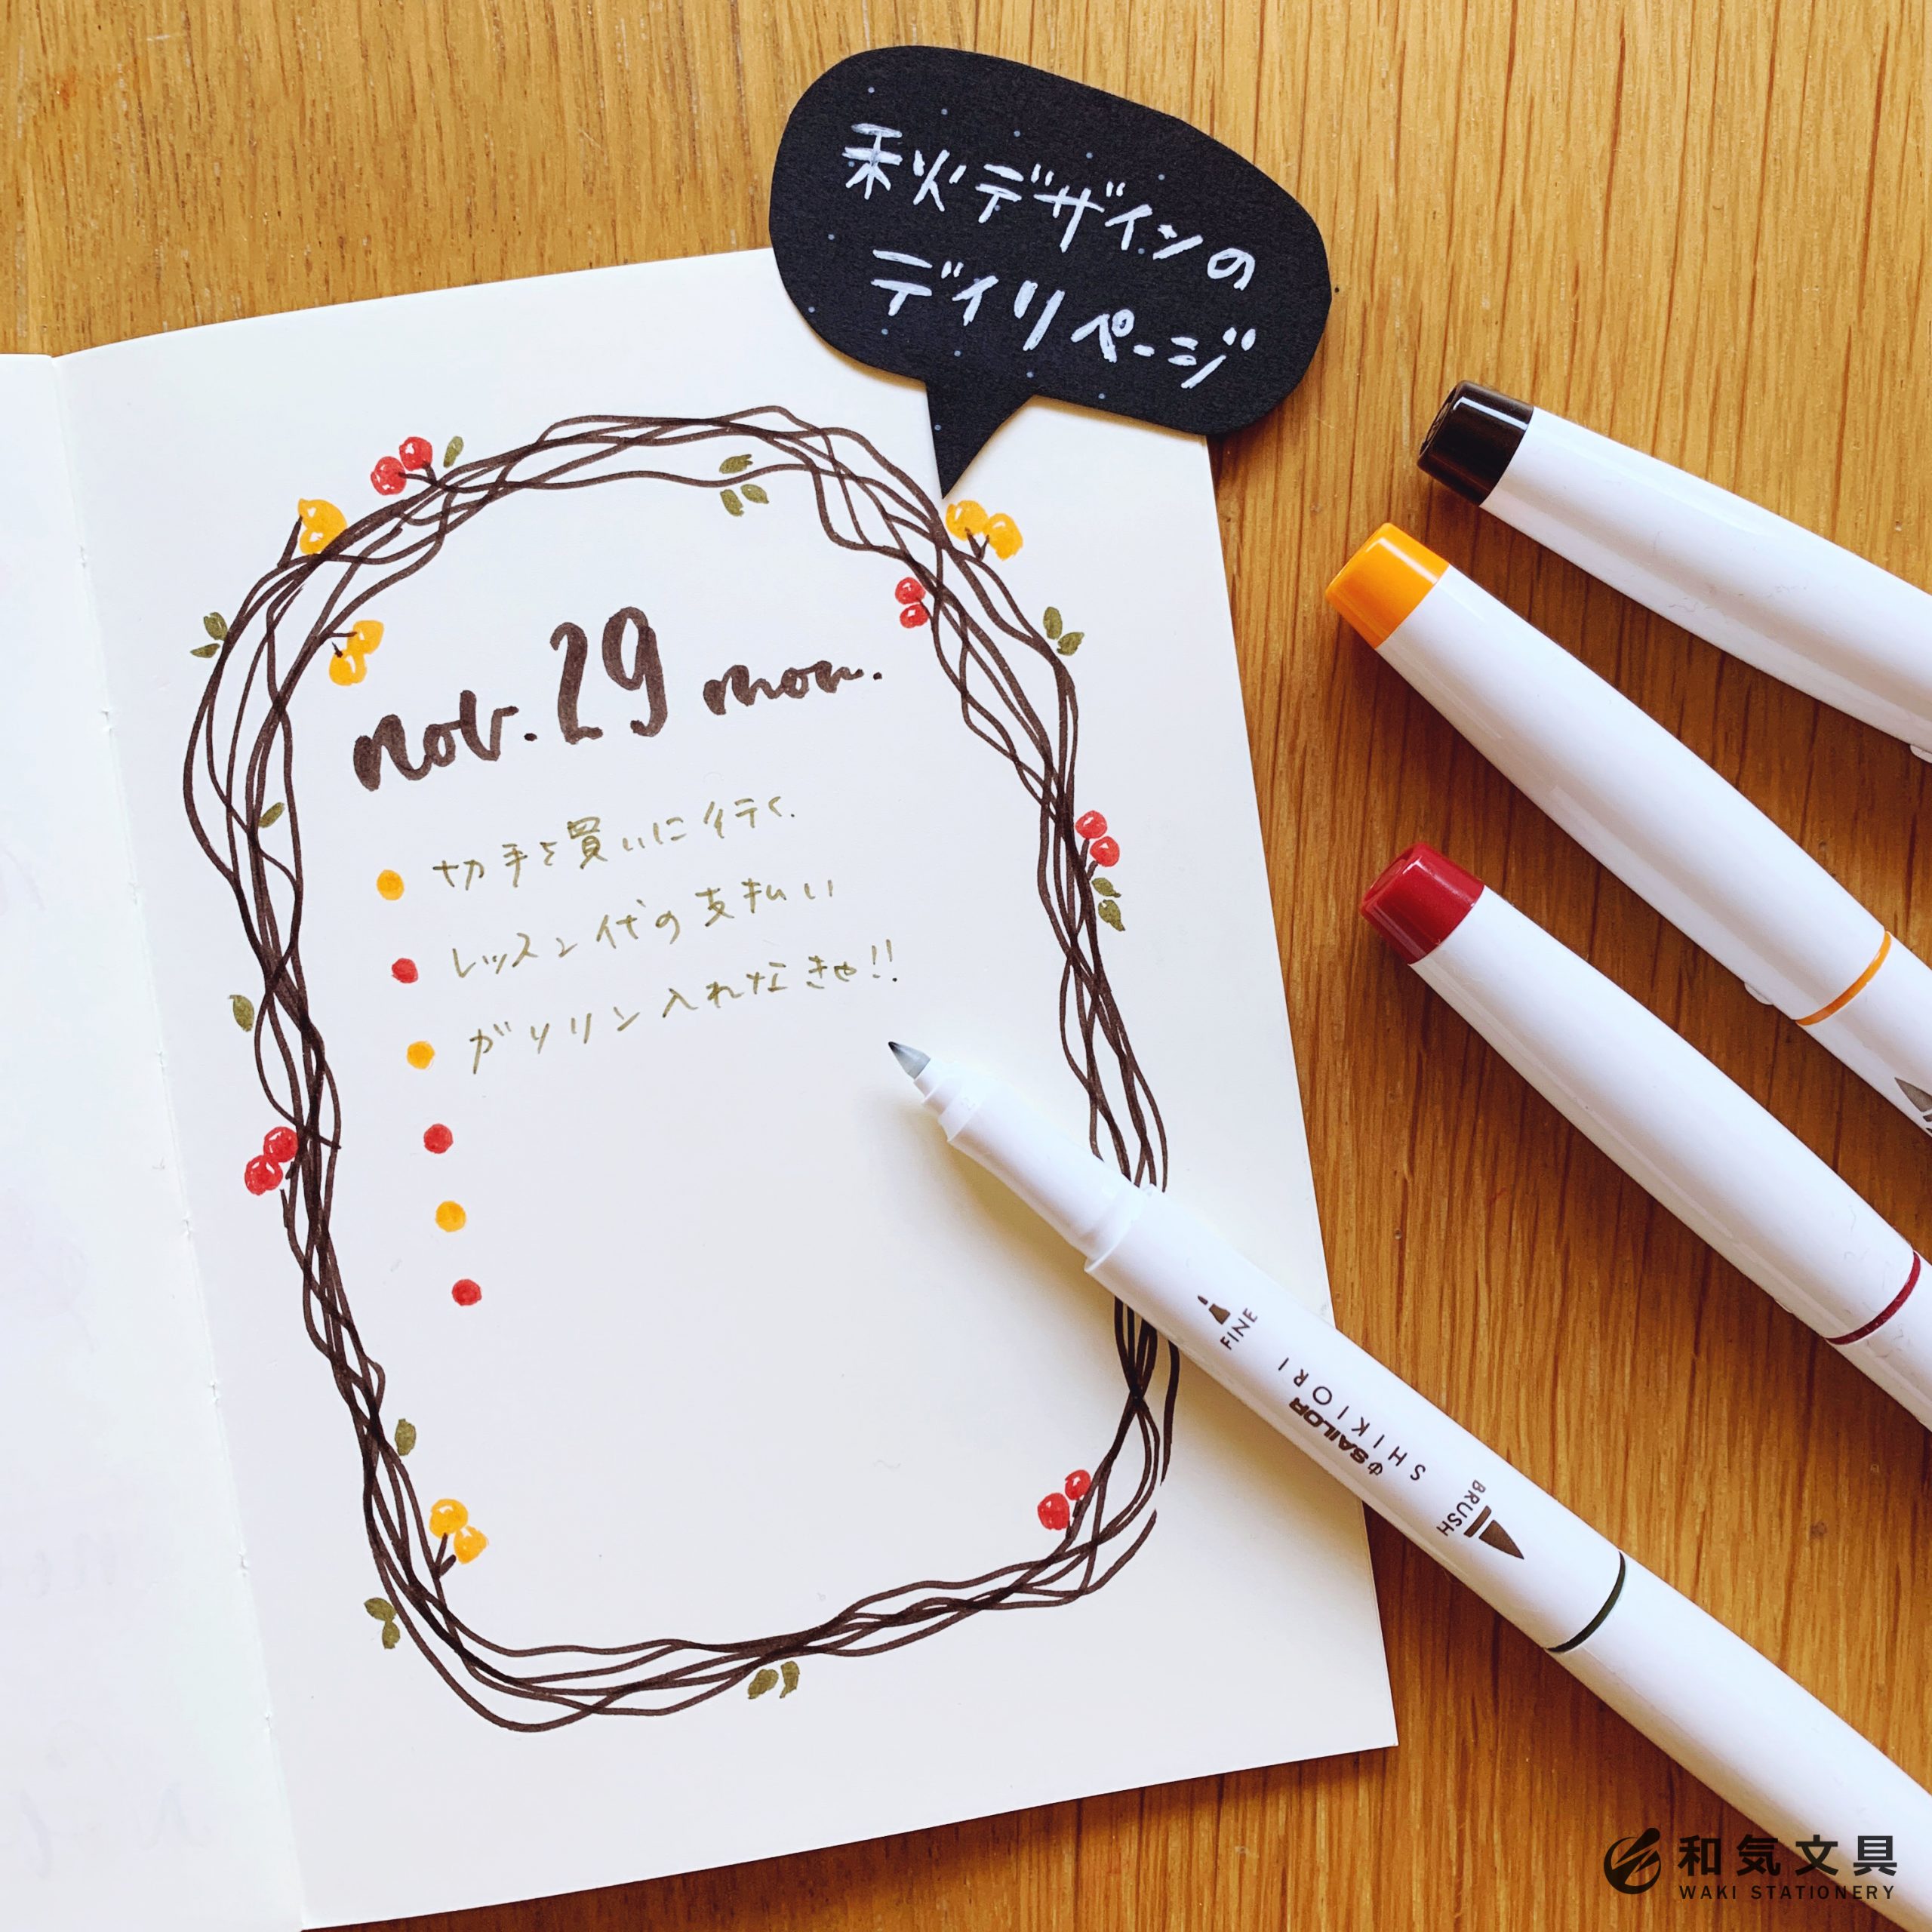 秋デザインの
デイリページ
nov. 29 mon.
切手を買いに行く.
レッスン代の支払い
ガソリン入れなきゃ!!
FINE
SHIKIORI
SAILOR
BRUSH
和気文具
WAKI STATIONERY